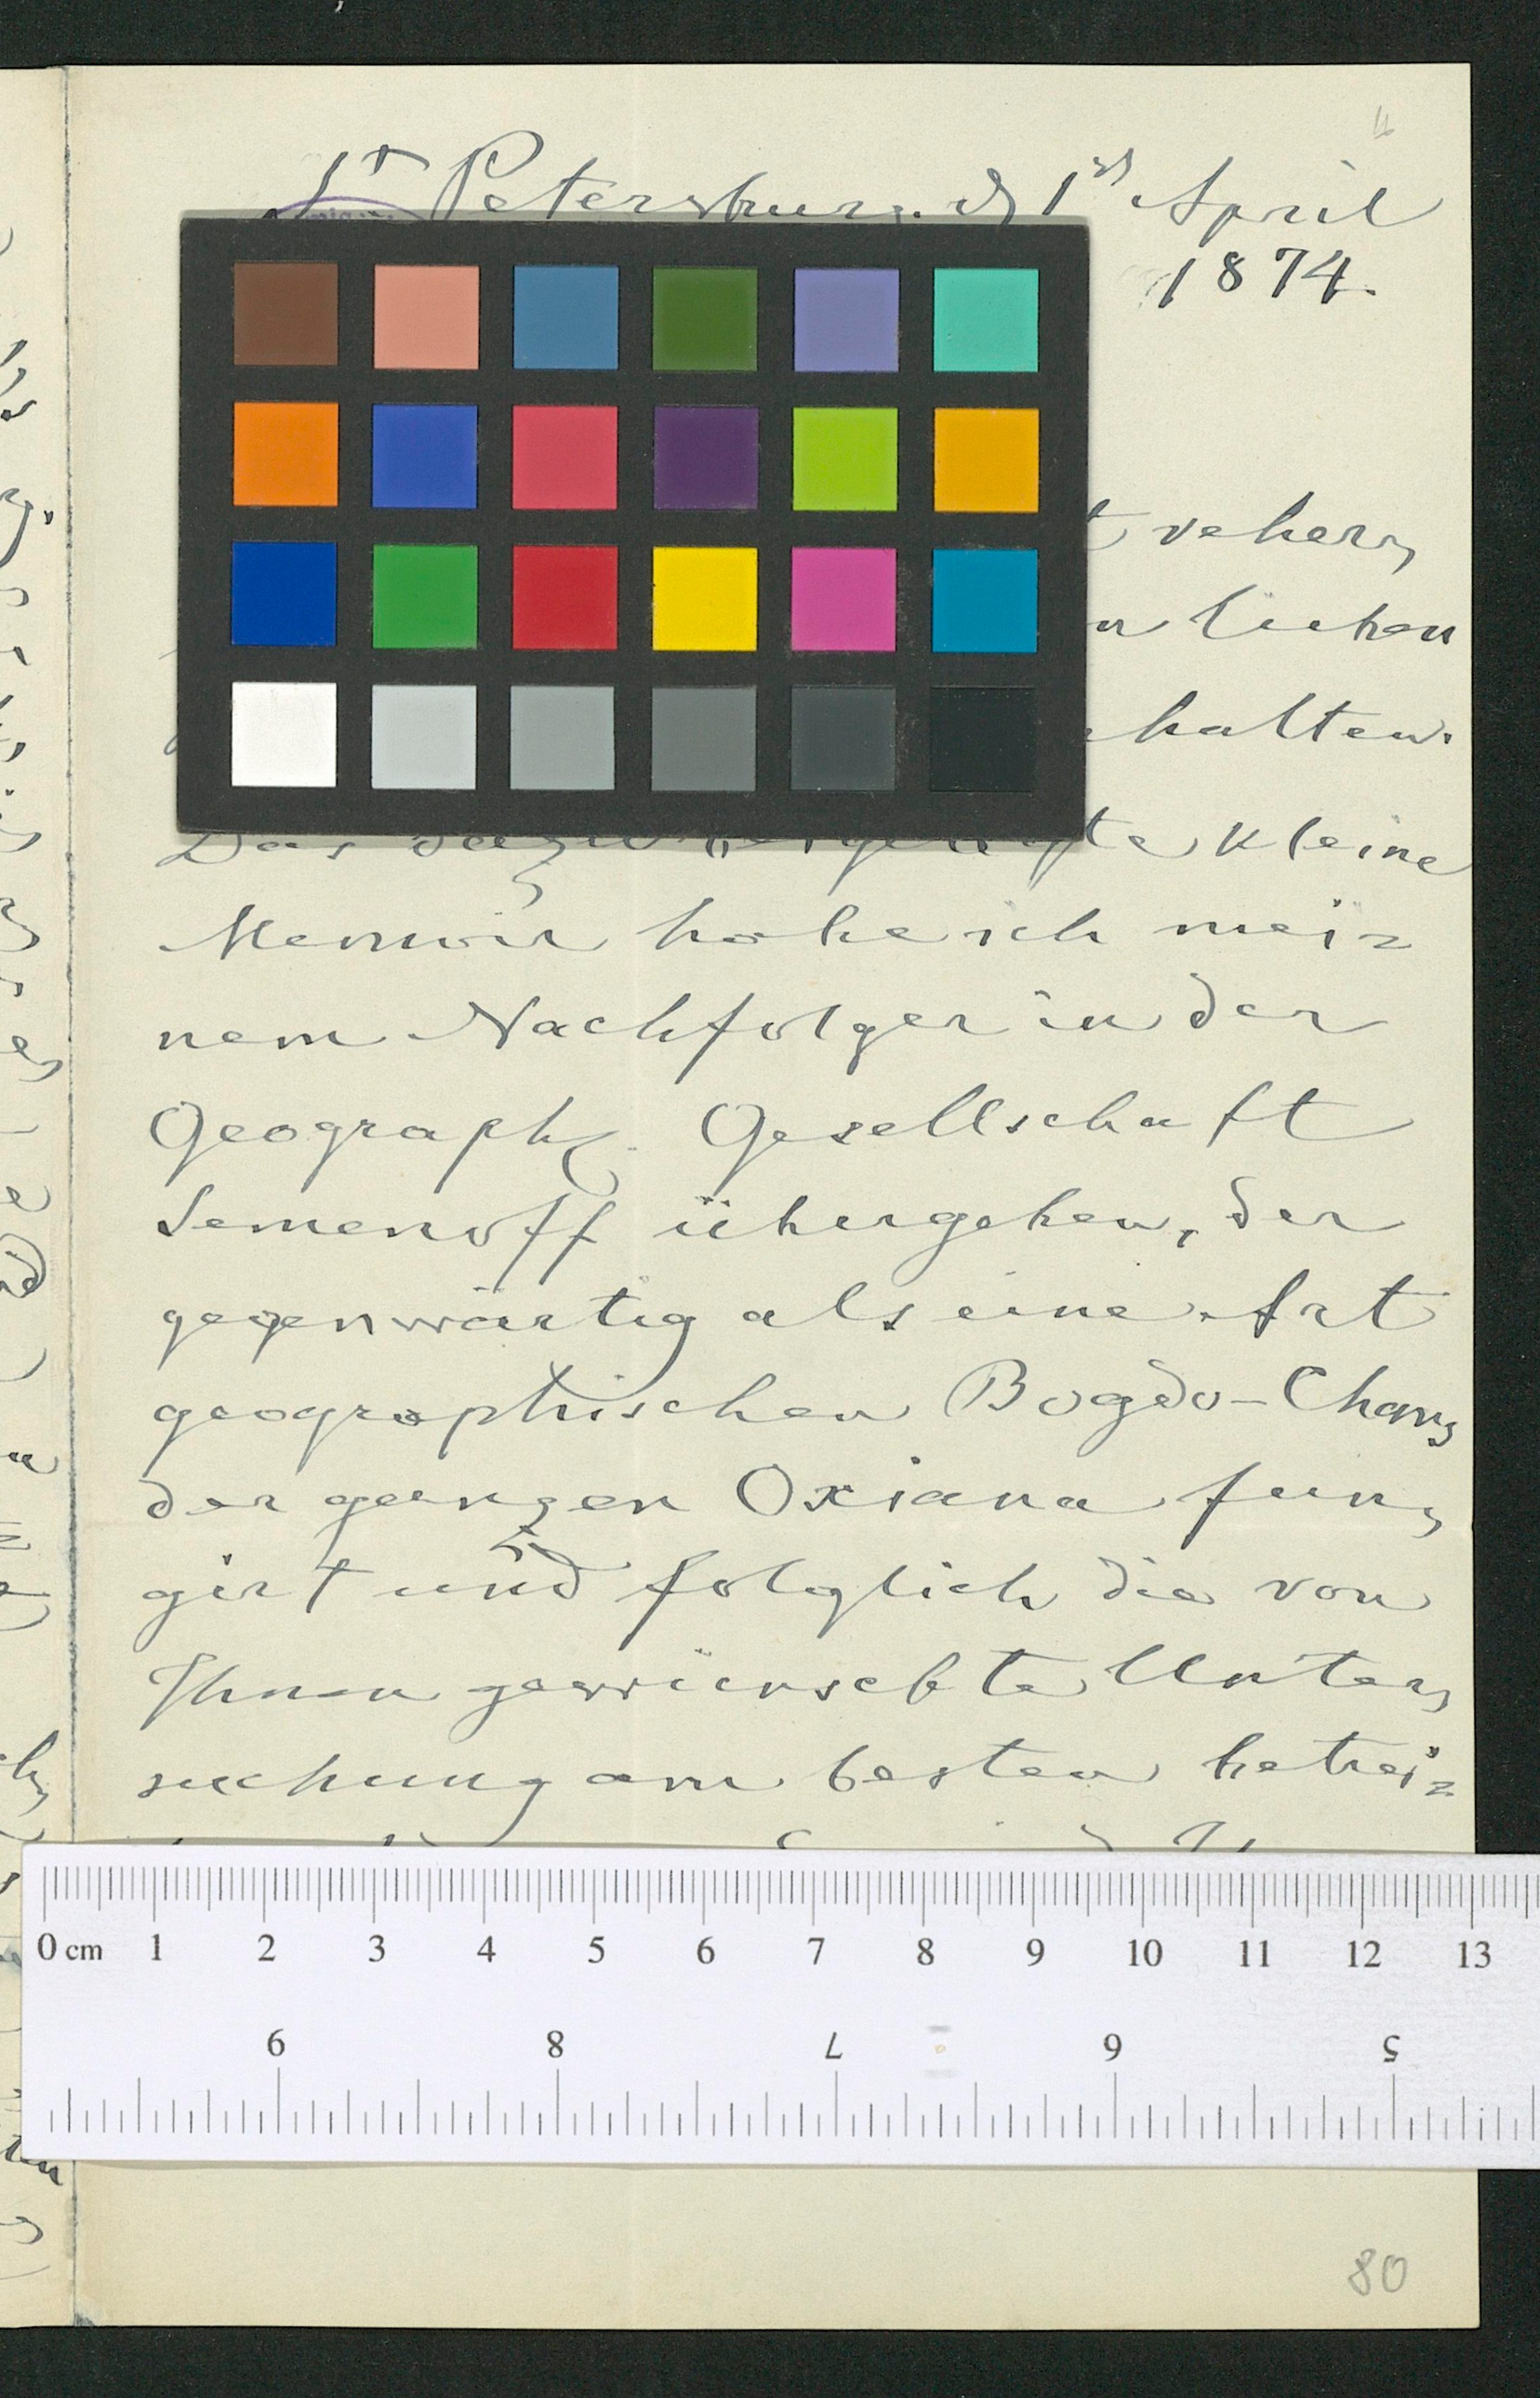 St Petersburg. d 1st April
1874.
t veher,
n lieben
halten.
Das dazu beigefügte kleine
Memoir habe ich mei=
nem Nachfolger in der
Geograph. Gesellschaft
Semenoff übergeben, der
gegenwärtig als eine Art
geographischen Bogdo-Chans
der ganzen Oxiana fun=
girt und folglich die von
Ihnen gewünschte Unter=
suchung am besten betrei=
0 cm 1 2 3 4 5 6 7 8 9 10 11 12 13
9 8 7 6 5
80